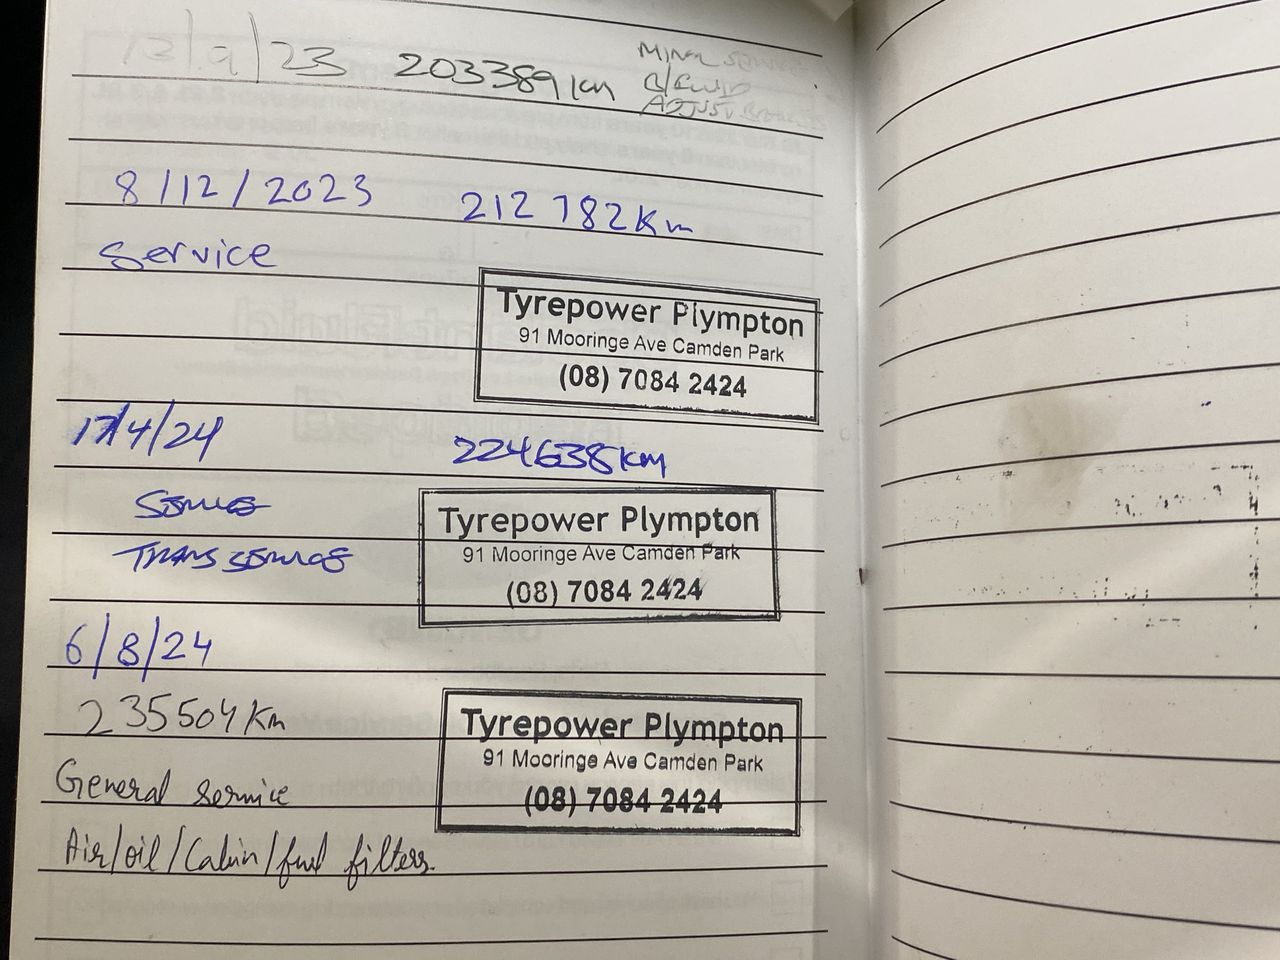 13/9/23 203389km MINOR SERVICE
B/FLUID
ADJUST BRAKES
8/12/2023 212 782Km
Service
Tyrepower Plympton
91 Mooringe Ave Camden Park
(08) 7084 2424
17/4/24 224638km
SERVICE
TRANS SERVICE
Tyrepower Plympton
91 Mooringe Ave Camden Park
(08) 7084 2424
6/8/24
235504Km
General Service
Air/oil/Cabin/fuel filters.
Tyrepower Plympton
91 Mooringe Ave Camden Park
(08) 7084 2424